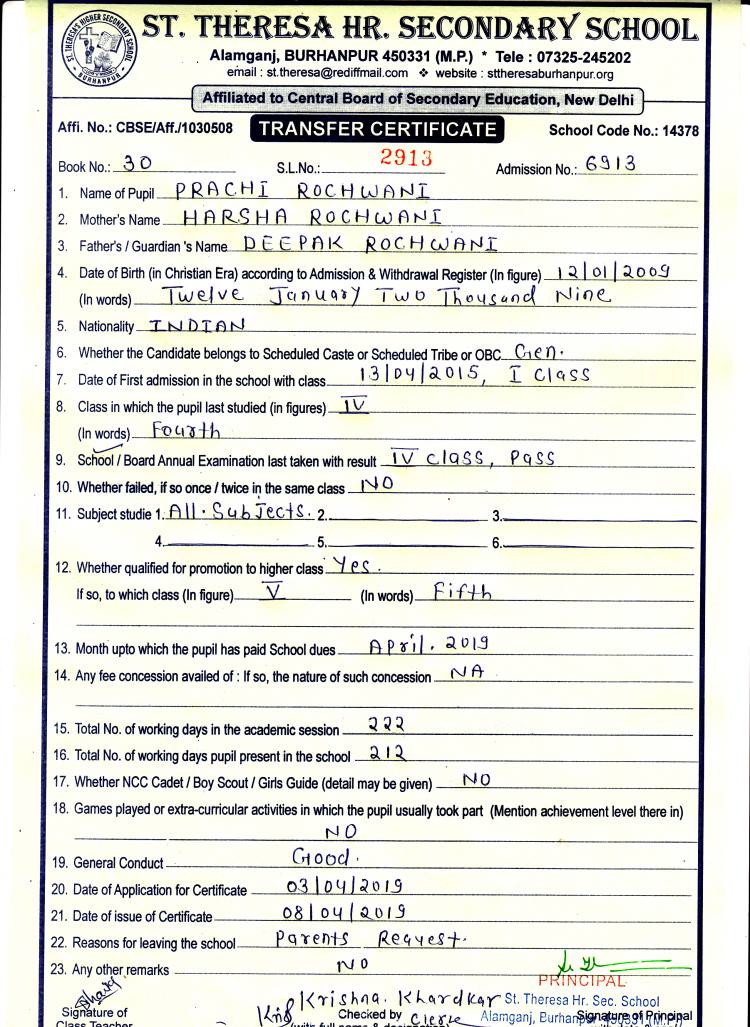 ST. THERESA HR. SECONDARY SCHOOL
Alamganj, BURHANPUR 450331 (M.P.) * Tele : 07325-245202
email : st.theresa@rediffmail.com ❖ website : sttheresaburhanpur.org
Affiliated to Central Board of Secondary Education, New Delhi
Affi. No.: CBSE/Aff./1030508 TRANSFER CERTIFICATE School Code No.: 14378
Book No.: 30 S.L.No.: 2913 Admission No.: 6913
1. Name of Pupil PRACHI ROCHWANI
2. Mother's Name HARSHA ROCHWANI
3. Father's / Guardian 's Name DEEPAK ROCHWANI
4. Date of Birth (in Christian Era) according to Admission & Withdrawal Register (In figure) 12/01/2009
(In words) Twelve January Two Thousand Nine
5. Nationality INDIAN
6. Whether the Candidate belongs to Scheduled Caste or Scheduled Tribe or OBC Gen.
7. Date of First admission in the school with class 13/04/2015, I Class
8. Class in which the pupil last studied (in figures) IV
(In words) Fourth
9. School / Board Annual Examination last taken with result IV class, Pass
10. Whether failed, if so once / twice in the same class NO
11. Subject studie 1. All. Subjects. 2. 3.
4. 5. 6.
12. Whether qualified for promotion to higher class Yes.
If so, to which class (In figure) V (In words) Fifth
13. Month upto which the pupil has paid School dues April. 2019
14. Any fee concession availed of : If so, the nature of such concession NA
15. Total No. of working days in the academic session 222
16. Total No. of working days pupil present in the school 212
17. Whether NCC Cadet / Boy Scout / Girls Guide (detail may be given) NO
18. Games played or extra-curricular activities in which the pupil usually took part (Mention achievement level there in)
NO
19. General Conduct Good.
20. Date of Application for Certificate 03/04/2019
21. Date of issue of Certificate 08/04/2019
22. Reasons for leaving the school Parents Request.
23. Any other remarks NO
PRINCIPAL
Krishna. Khardkar St. Theresa Hr. Sec. School
Signature of Checked by Clerk Alamganj, Burhanpur 450331 (M.P.) Signature of Principal
Class Teacher (with full name & designation)